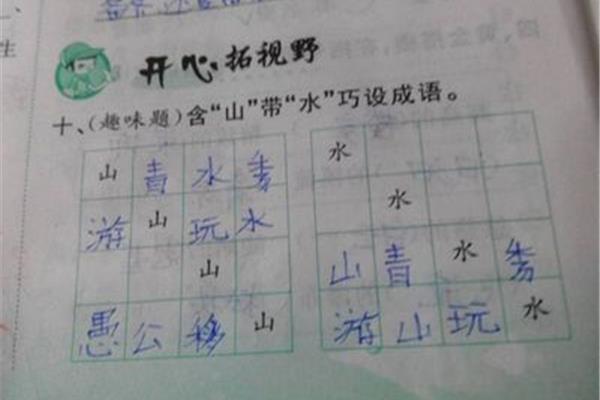 生
开心拓视野
十、(趣味题)含“山”带“水”巧设成语。
山青水秀
游山玩水
山
愚公移山
水
水
山青水秀
游山玩水